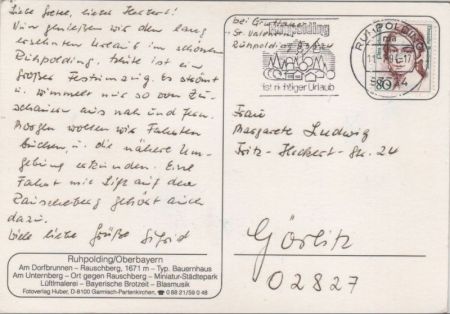 Liebe Grete, lieber Herbert!
Nun genießen wir den lang
ersehnten Urlaub im schönen
Ruhpolding. Heute ist ein
großer Festumzug. Es strömt
u. wimmelt nur so von Zu-
schauern aus nah und fern.
Morgen wollen wir Fahrten
buchen, u. die nähere Um-
gebung erkunden. Eine
Fahrt mit Lift auf den
Rauschberg gehört auch
dazu.
Viele liebe Grüße Sigrid
Ruhpolding/Oberbayern
Am Dorfbrunnen – Rauschberg, 1671 m – Typ. Bauernhaus
Am Unternberg – Ort gegen Rauschberg – Miniatur-Städtepark
Lüftlmalerei – Bayerische Brotzeit – Blasmusik
Fotoverlag Huber, D-8100 Garmisch-Partenkirchen, ☎ 0 88 21/59 0 48
bei
St. Valentin
Ruhpolding
Ruhpolding
ist richtiger Urlaub
RUHPOLDING
80
Frau
Margarete Ludwig
Fritz-Heckert-Str. 24
Görlitz
02827